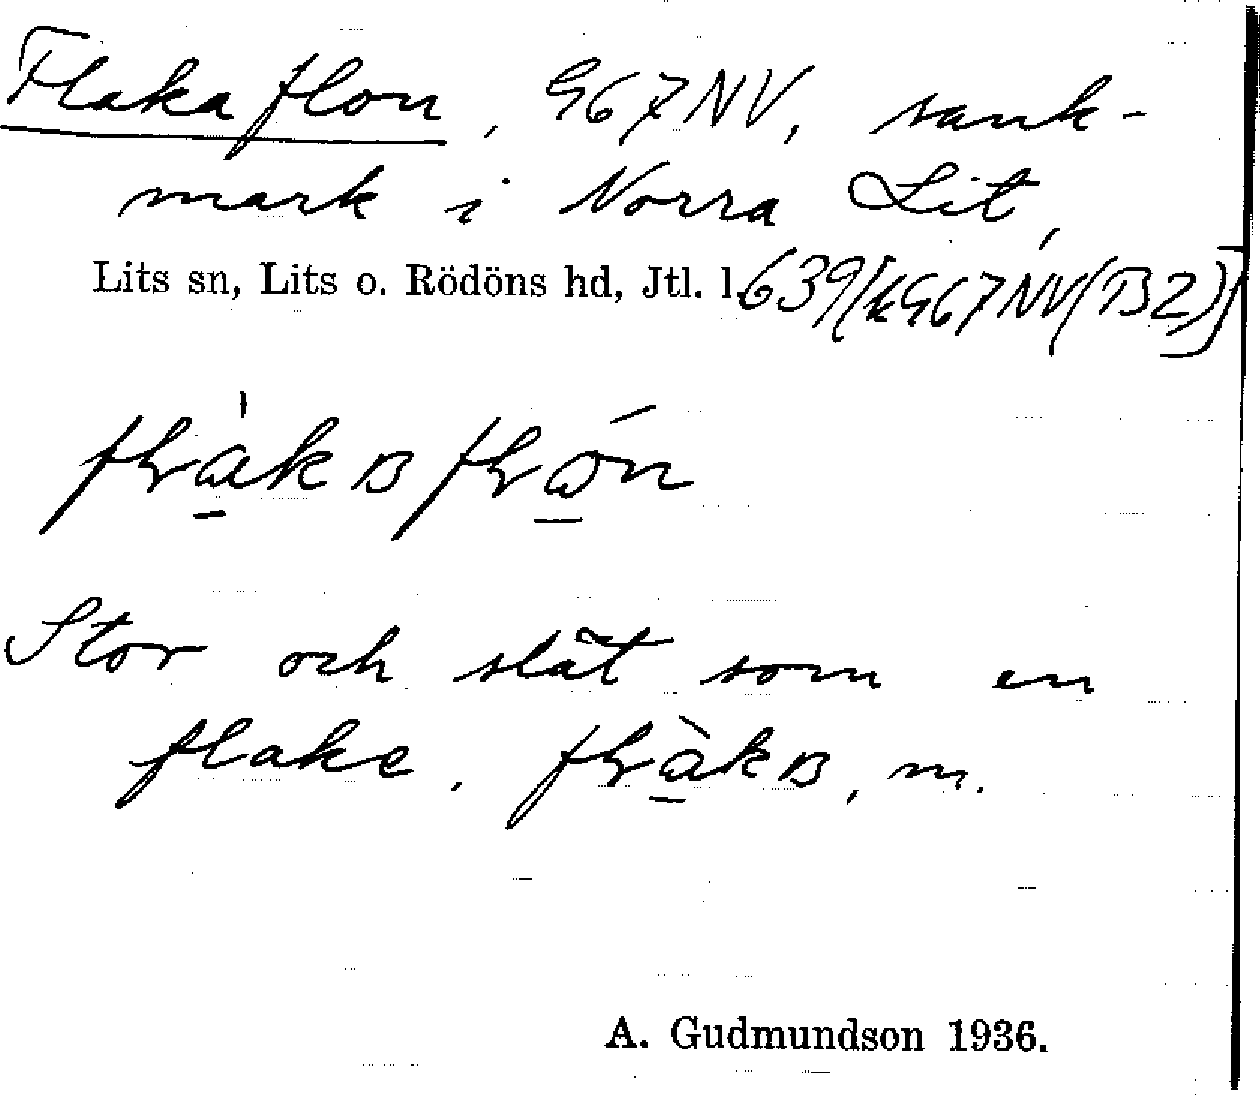 Flakaflon, 967NV, sank-
mark i Norra Lit,
Lits sn, Lits o. Rödöns hd, Jtl. l. 639/[k967NV(B2)]
Stor och slät som en
flake. m.
A. Gudmundson 1936.